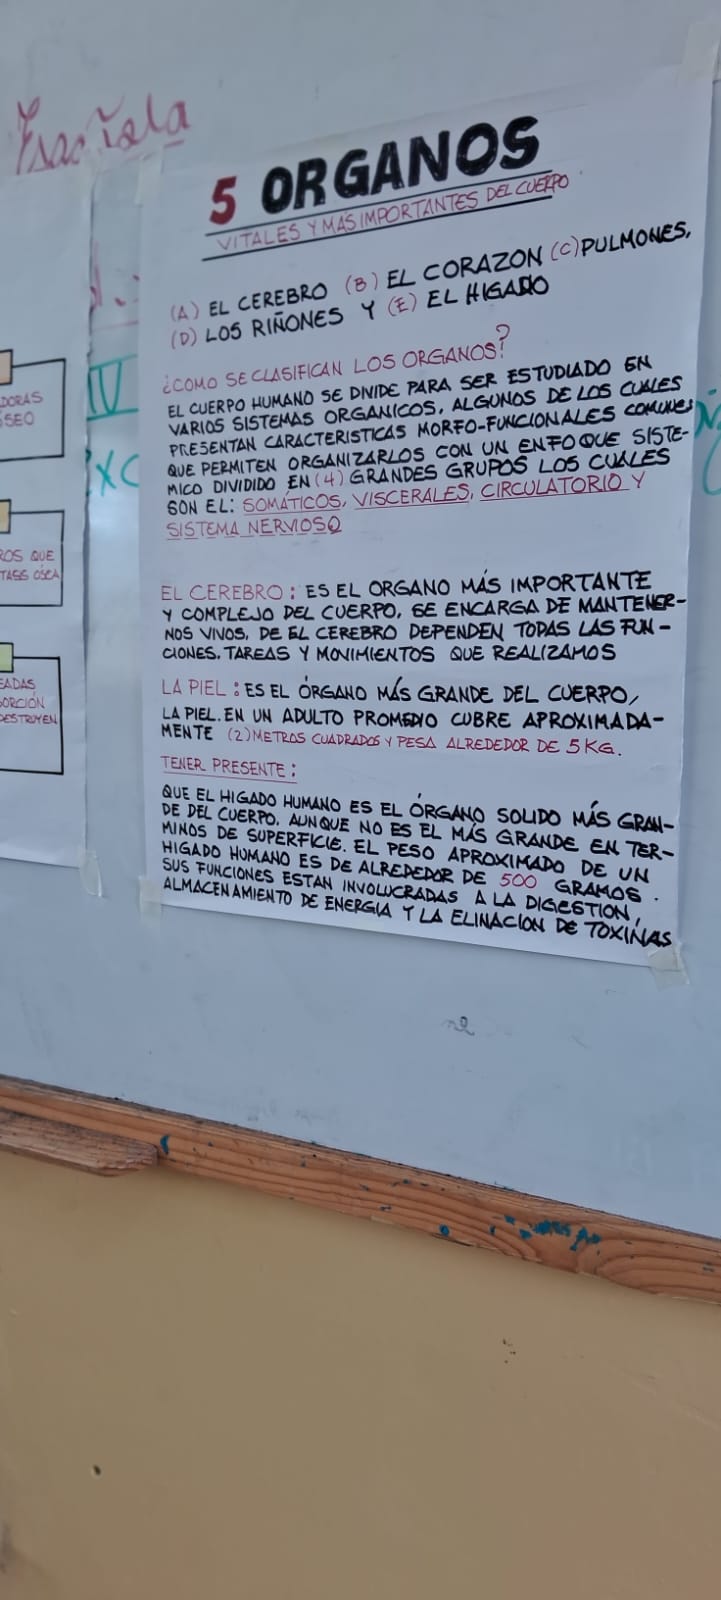 5 ORGANOS
VITALES Y MAS IMPORTANTES DEL CUERPO
(A) EL CEREBRO (B) EL CORAZON (C) PULMONES,
(D) LOS RIÑONES Y (E) EL HIGADO
¿COMO SE CLASIFICAN LOS ORGANOS?
EL CUERPO HUMANO SE DIVIDE PARA SER ESTUDIADO EN
VARIOS SISTEMAS ORGANICOS, ALGUNOS DE LOS CUALES
PRESENTAN CARACTERISTICAS MORFO-FUNCIONALES COMUNES
QUE PERMITEN ORGANIZARLOS CON UN ENFOQUE SISTE-
MICO DIVIDIDO EN (4) GRANDES GRUPOS LOS CUALES
SON EL: SOMÁTICOS, VISCERALES, CIRCULATORIO Y
SISTEMA NERVIOSO
EL CEREBRO: ES EL ORGANO MÁS IMPORTANTE
Y COMPLEJO DEL CUERPO, SE ENCARGA DE MANTENER-
NOS VIVOS, DE EL CEREBRO DEPENDEN TODAS LAS FUN-
CIONES, TAREAS Y MOVIMIENTOS QUE REALIZAMOS
LA PIEL: ES EL ÓRGANO MÁS GRANDE DEL CUERPO,
LA PIEL. EN UN ADULTO PROMEDIO CUBRE APROXIMADA-
MENTE (2) METROS CUADRADOS Y PESA ALREDEDOR DE 5 KG.
TENER PRESENTE:
QUE EL HIGADO HUMANO ES EL ÓRGANO SOLIDO MÁS GRAN-
DE DEL CUERPO. AUNQUE NO ES EL MÁS GRANDE EN TER-
MINOS DE SUPERFICIE. EL PESO APROXIMADO DE UN
HIGADO HUMANO ES DE ALREDEDOR DE 500 GRAMOS.
SUS FUNCIONES ESTAN INVOLUCRADAS A LA DIGESTION,
ALMACENAMIENTO DE ENERGIA Y LA ELINACION DE TOXINAS
DORAS
SEO
ROS QUE
TASS OSEA
EADAS
ORCIÓN
DESTRUYEN
IV